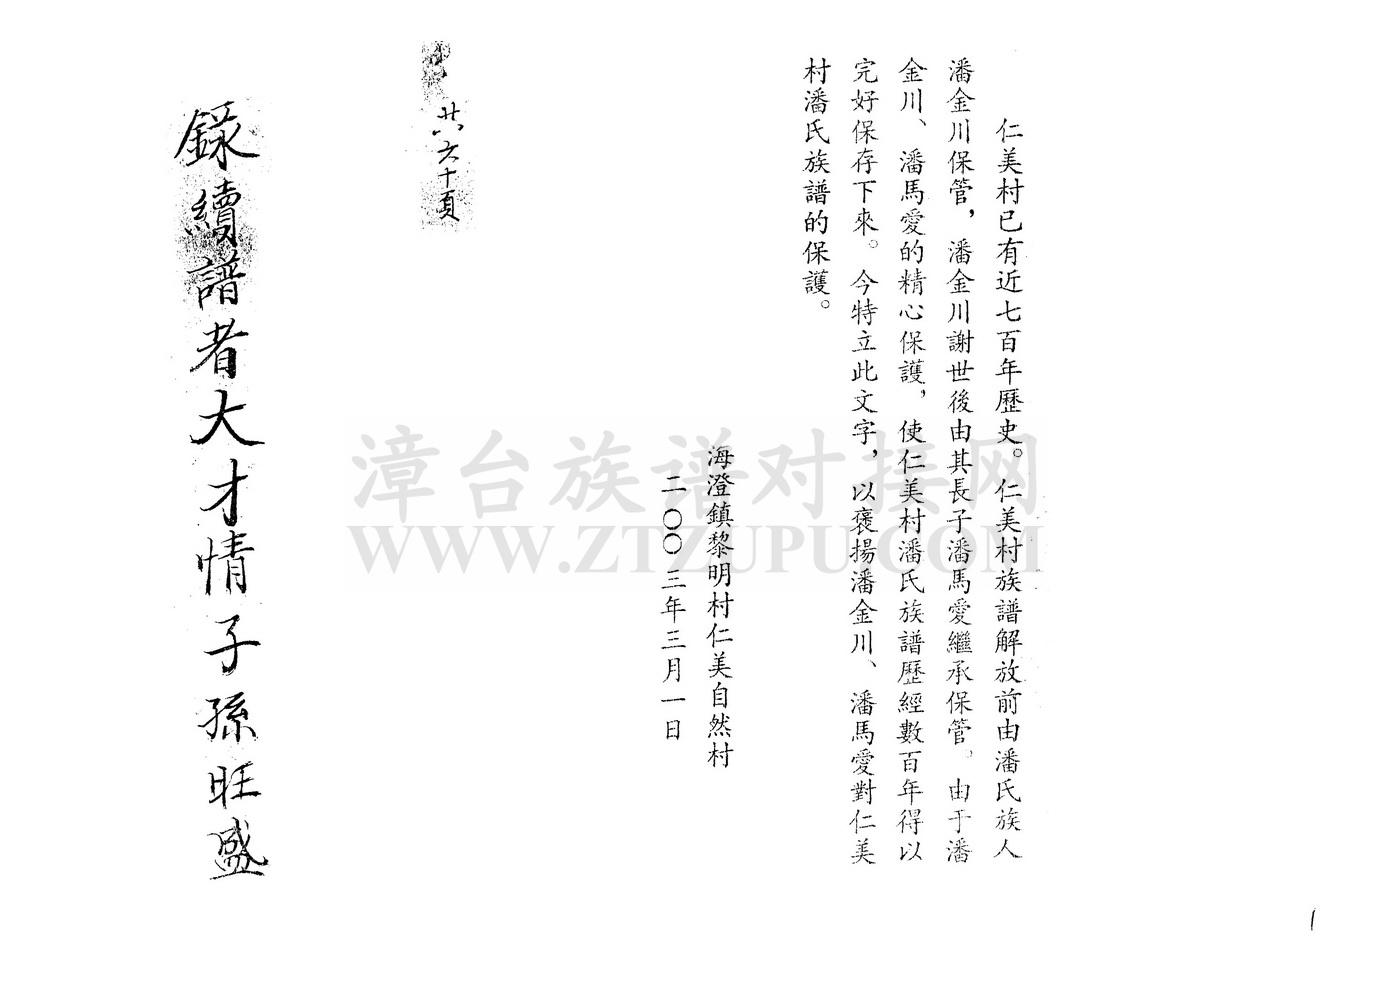 仁美村已有近七百年歷史。仁美村族譜解放前由潘氏族人
潘金川保管，潘金川謝世後由其長子潘馬愛繼承保管。由于潘
金川、潘馬愛的精心保護，使仁美村潘氏族譜歷經數百年得以
完好保存下來。今特立此文字，以褒揚潘金川、潘馬愛對仁美
村潘氏族譜的保護。
海澄鎮黎明村仁美自然村
二〇〇三年三月一日
共六十頁
錄續譜者大才情子孫旺盛
漳台族谱对接网
WWW.ZTZUPU.COM
1